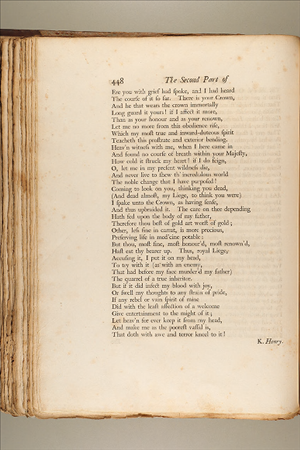 448 The Second Part of
Ere you with grief had spoke, and I had heard
The course of it so far. There is your Crown,
And he that wears the crown immortally
Long guard it yours! if I affect it more,
Than as your honour and as your renown,
Let me no more from this obedience rise,
Which my most true and inward-duteous spirit
Teacheth this prostrate and exterior bending.
Heav'n witness with me, when I here came in
And found no course of breath within your Majesty,
How cold it struck my heart! if I do feign,
O, let me in my present wildness die,
And never live to shew th' incredulous world
The noble change that I have purposed!
Coming to look on you, thinking you dead,
(And dead almost, my Liege, to think you were)
I spake unto the Crown, as having sense,
And thus upbraided it. The care on thee depending
Hath fed upon the body of my father,
Therefore thou best of gold art worst of gold;
Other, less fine in carrat, is more precious,
Preserving life in med'cine potable:
But thou, most fine, most honour'd, most renown'd,
Hast eat thy bearer up. Thus, royal Liege,
Accusing it, I put it on my head,
To try with it (as with an enemy,
That had before my face murder'd my father)
The quarrel of a true inheritor.
But if it did infect my blood with joy,
Or swell my thoughts to any strain of pride,
If any rebel or vain spirit of mine
Did with the least affection of a welcome
Give entertainment to the might of it;
Let heav'n for ever keep it from my head,
And make me as the poorest vassal is,
That doth with awe and terror kneel to it!
K. Henry.